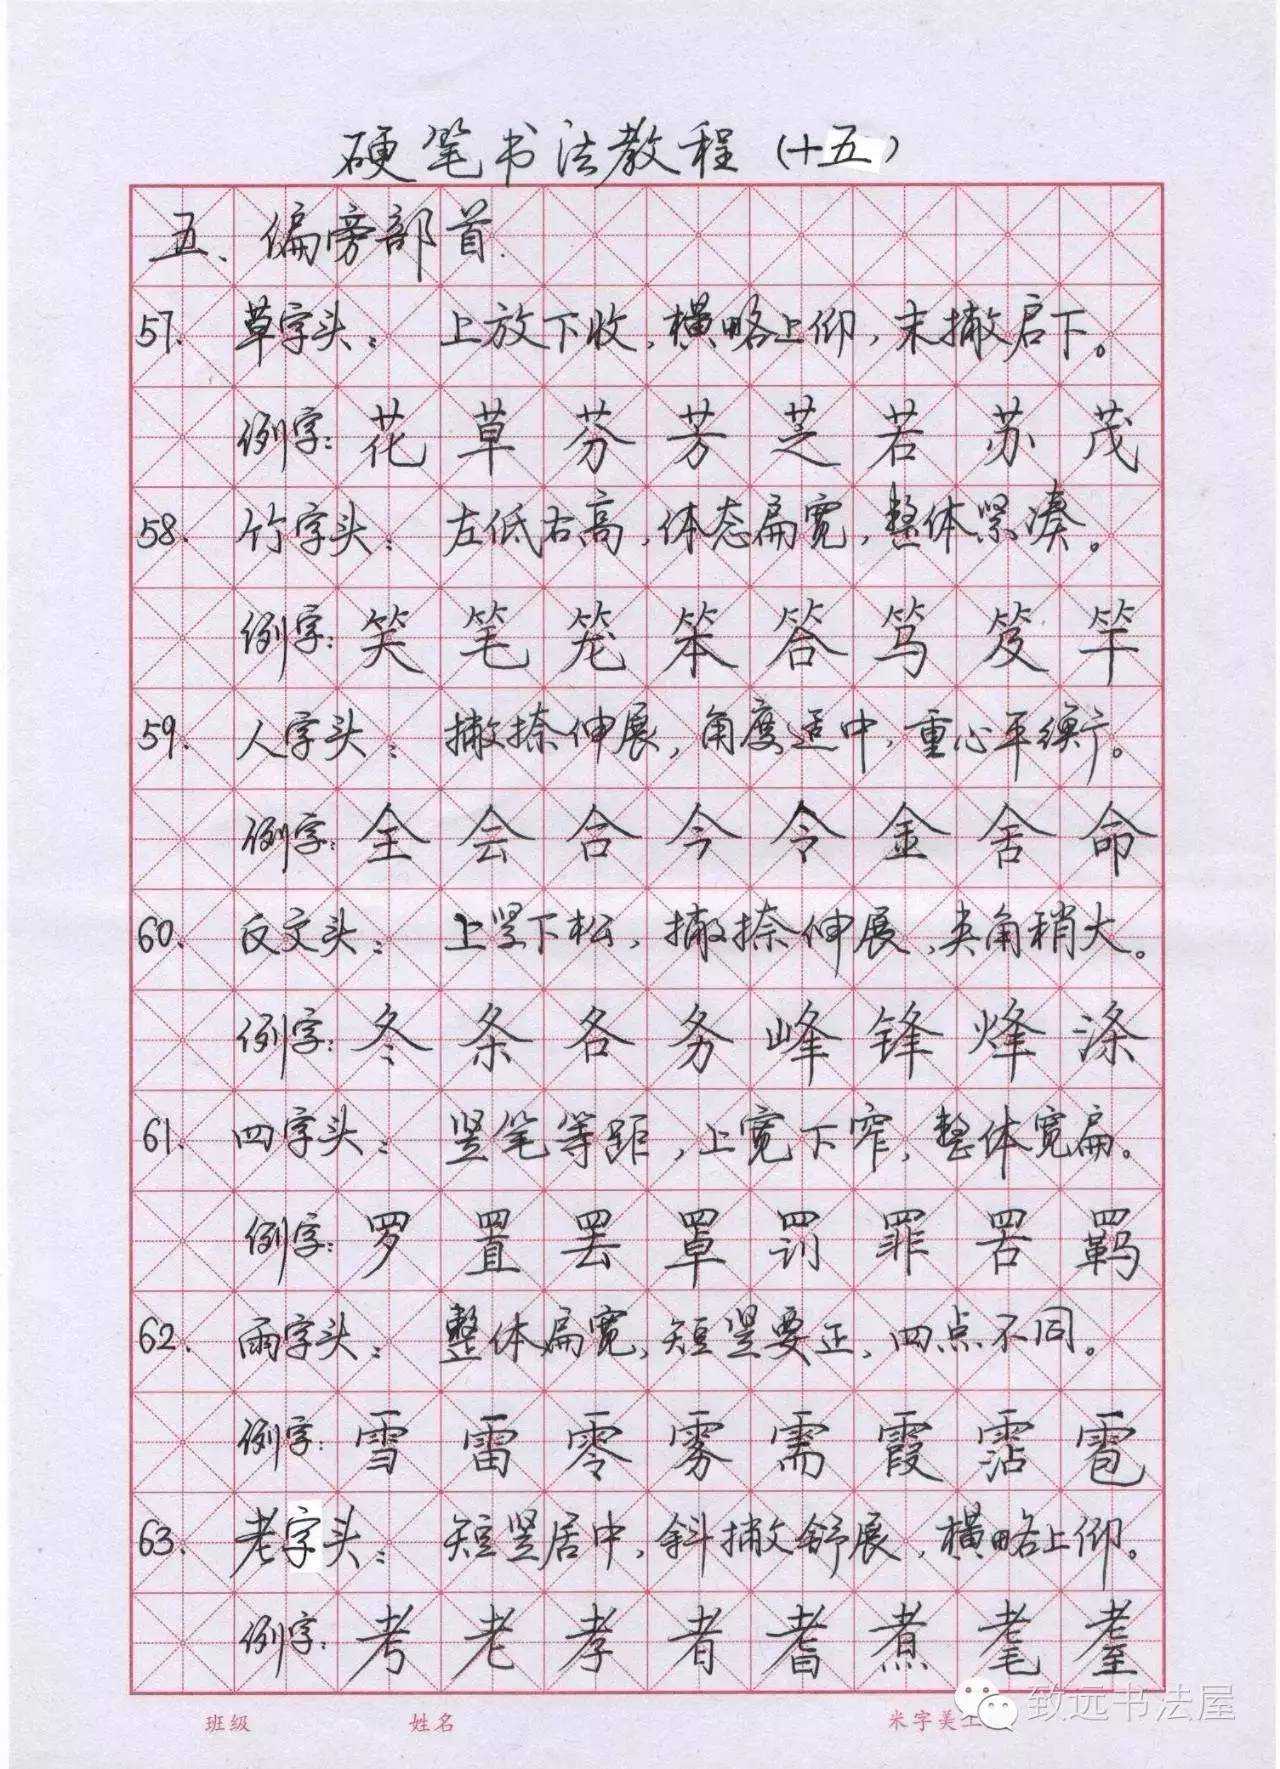 硬笔书法教程(十五)
五、偏旁部首.
57. 草字头: 上放下收,横略上仰,末撇启下。
例字: 花 草 芬 芳 芝 若 苏 茂
58. 竹字头: 左低右高,体态扁宽,整体紧凑。
例字: 笑 笔 笼 笨 答 笃 笈 竿
59. 人字头: 撇捺伸展,角度适中,重心平衡。
例字: 全 会 合 今 令 金 舍 命
60. 反文头: 上紧下松,撇捺伸展,夹角稍大。
例字: 冬 条 各 务 峰 锋 烽 涤
61. 四字头: 竖笔等距,上宽下窄,整体宽扁。
例字: 罗 置 罢 罩 罚 罪 署 羁
62. 雨字头: 整体扁宽,短竖要正,四点不同。
例字: 雪 雷 零 雾 需 霞 霑 雹
63. 老字头: 短竖居中,斜撇舒展,横略上仰。
例字: 考 老 孝 者 耆 煮 耄 耋
班级 姓名 米字美工
致远书法屋